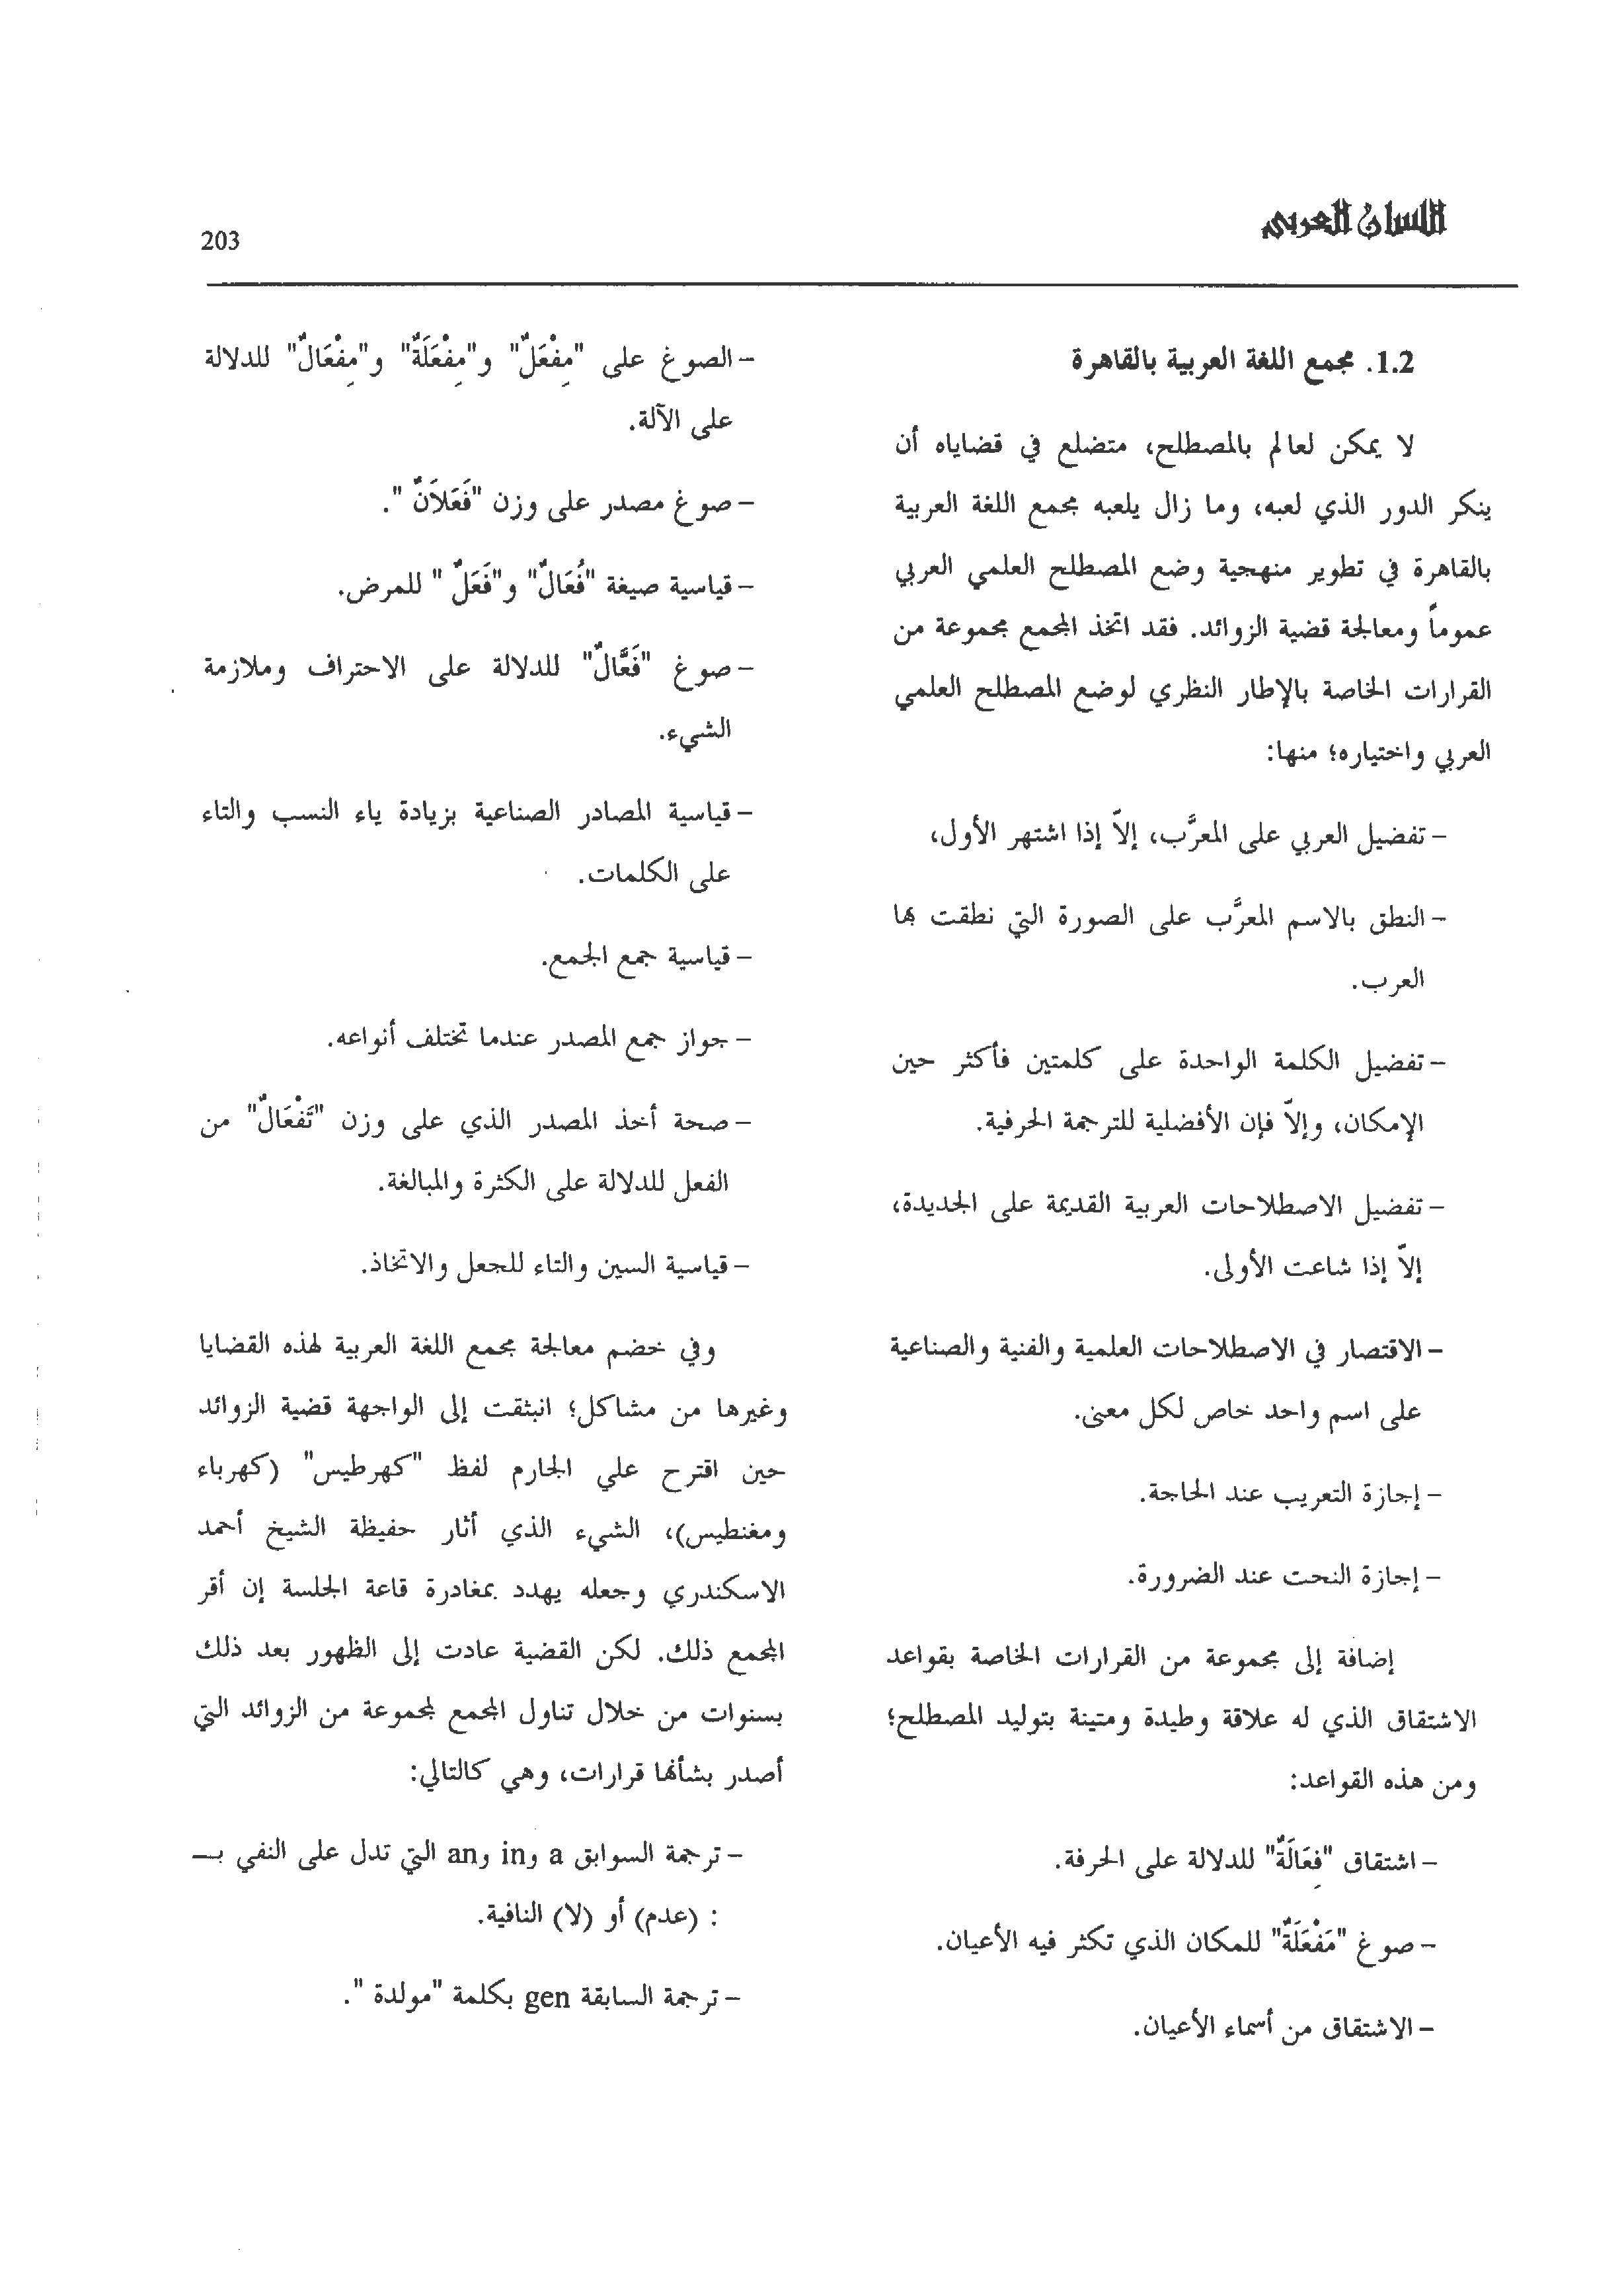 اللسان العربي
203
1.2. مجمع اللغة العربية بالقاهرة
لا يمكن لعالم بالمصطلح، متضلع في قضاياه أن
ينكر الدور الذي لعبه، وما زال يلعبه مجمع اللغة العربية
بالقاهرة في تطوير منهجية وضع المصطلح العلمي العربي
عموماً ومعالجة قضية الزوائد. فقد اتخذ المجمع مجموعة من
القرارات الخاصة بالإطار النظري لوضع المصطلح العلمي
العربي واختياره؛ منها:
- تفضيل العربي على المعرَّب، إلاّ إذا اشتهر الأول،
- النطق بالاسم المعرَّب على الصورة التي نطقت بها
العرب.
- تفضيل الكلمة الواحدة على كلمتين فأكثر حين
الإمكان، وإلاّ فإن الأفضلية للترجمة الحرفية.
- تفضيل الاصطلاحات العربية القديمة على الجديدة،
إلاّ إذا شاعت الأولى.
- الاقتصار في الاصطلاحات العلمية والفنية والصناعية
على اسم واحد خاص لكل معنى.
- إجازة التعريب عند الحاجة.
- إجازة النحت عند الضرورة.
إضافة إلى مجموعة من القرارات الخاصة بقواعد
الاشتقاق الذي له علاقة وطيدة ومتينة بتوليد المصطلح؛
ومن هذه القواعد:
- اشتقاق "فِعَالَةٌ" للدلالة على الحرفة.
- صوغ "مَفْعَلَةٌ" للمكان الذي تكثر فيه الأعيان.
- الاشتقاق من أسماء الأعيان.
- الصوغ على "مِفْعَلٌ" و"مِفْعَلَةٌ" و"مِفْعَالٌ" للدلالة
على الآلة.
- صوغ مصدر على وزن "فَعَلاَنٌ ".
- قياسية صيغة "فُعَالٌ" و"فَعَلٌ " للمرض.
- صوغ "فَعَّالٌ" للدلالة على الاحتراف وملازمة
الشيء.
- قياسية المصادر الصناعية بزيادة ياء النسب والتاء
على الكلمات.
- قياسية جمع الجمع.
- جواز جمع المصدر عندما تختلف أنواعه.
- صحة أخذ المصدر الذي على وزن "تَفْعَالٌ" من
الفعل للدلالة على الكثرة والمبالغة.
- قياسية السين والتاء للجعل والاتخاذ.
وفي خضم معالجة مجمع اللغة العربية لهذه القضايا
وغيرها من مشاكل؛ انبثقت إلى الواجهة قضية الزوائد
حين اقترح علي الجارم لفظ "كهرطيس" (كهرباء
ومغنطيس)، الشيء الذي أثار حفيظة الشيخ أحمد
الاسكندري وجعله يهدد بمغادرة قاعة الجلسة إن أقر
المجمع ذلك. لكن القضية عادت إلى الظهور بعد ذلك
بسنوات من خلال تناول المجمع لمجموعة من الزوائد التي
أصدر بشأنها قرارات، وهي كالتالي:
- ترجمة السوابق a وin وan التي تدل على النفي بـــ
: (عدم) أو (لا) النافية.
- ترجمة السابقة gen بكلمة "مولدة ".